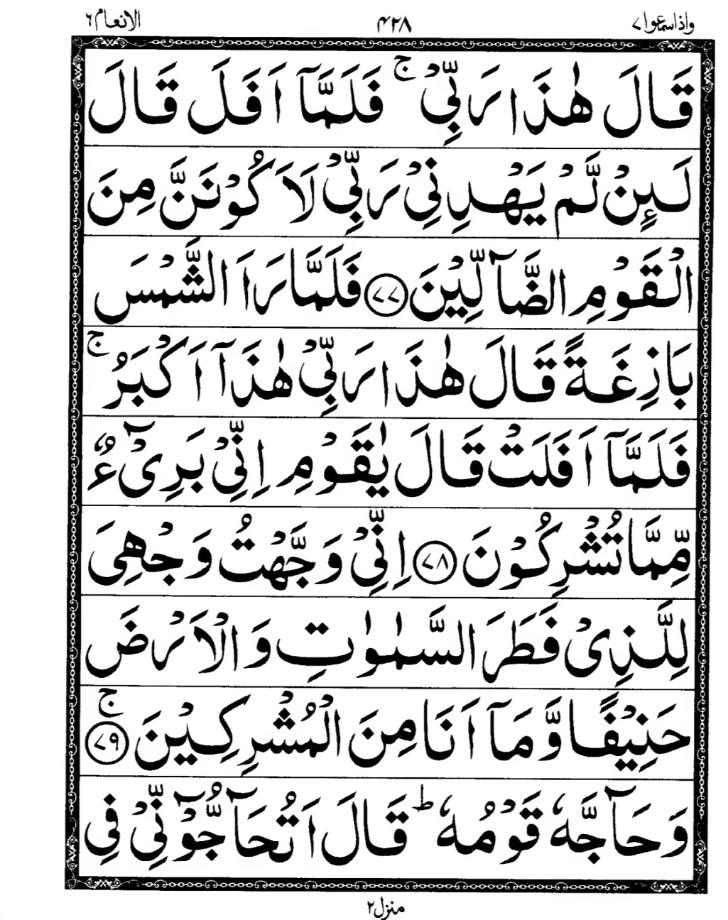 واذاسمعوا۷ ۴۲۸ الانعام۶
قَالَ هٰذَا رَبِّیْ ۚ فَلَمَّاۤ اَفَلَ قَالَ
لَىِٕنْ لَّمْ یَهْدِنِیْ رَبِّیْ لَاَكُوْنَنَّ مِنَ
الْقَوْمِ الضَّآلِّیْنَ ﴿۷۷﴾ فَلَمَّا رَاَ الشَّمْسَ
بَازِغَةً قَالَ هٰذَا رَبِّیْ هٰذَاۤ اَكْبَرُ ۚ
فَلَمَّاۤ اَفَلَتْ قَالَ یٰقَوْمِ اِنِّیْ بَرِیْٓءٌ
مِّمَّا تُشْرِكُوْنَ ﴿۷۸﴾ اِنِّیْ وَجَّهْتُ وَجْهِیَ
لِلَّذِیْ فَطَرَ السَّمٰوٰتِ وَالْاَرْضَ
حَنِیْفًا وَّمَاۤ اَنَا مِنَ الْمُشْرِكِیْنَ ﴿۷۹﴾ ۚ
وَحَآجَّهٗ قَوْمُهٗ ؕ قَالَ اَتُحَآجُّوْٓنِّیْ فِی
منزل۲